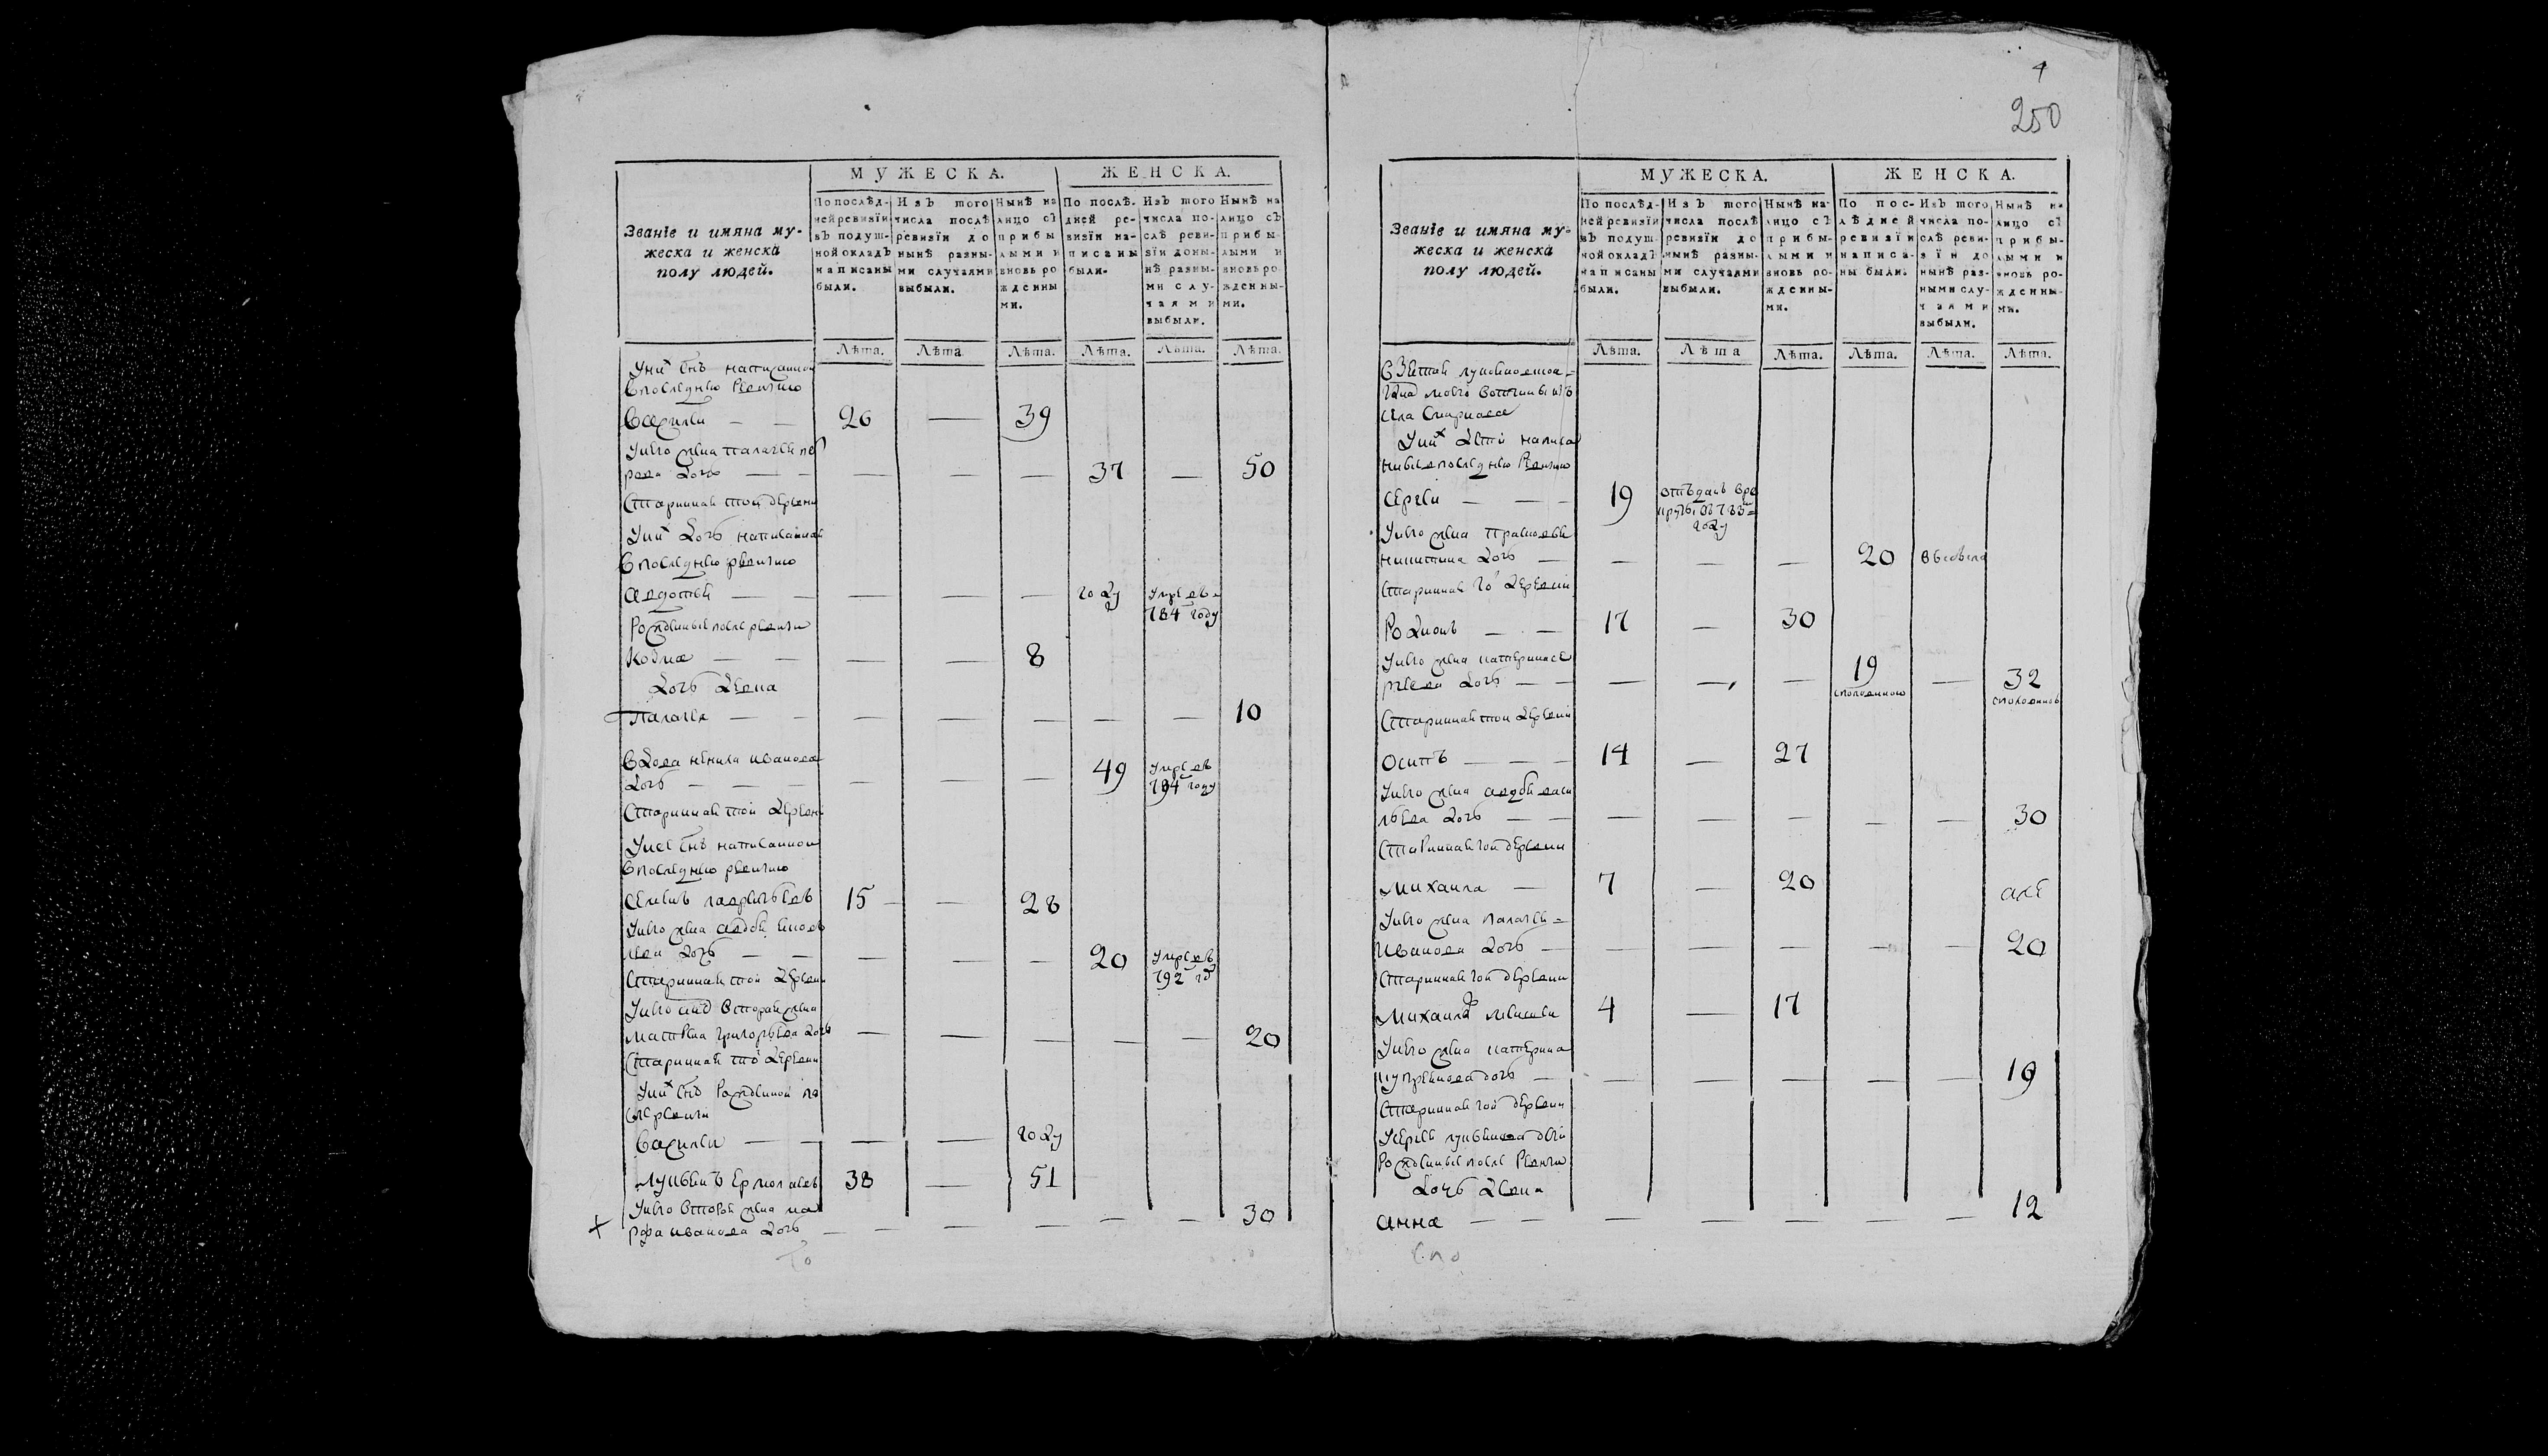 МУЖЕСКА.
ЖЕНСКА.
Званіе и имяна му-
жеска и женска
полу людей.
По послѣд-
ней ревизіи
въ подуш-
ной окладъ
написаны
были.
Изъ того
числа послѣ
ревизіи до
нынѣ разны-
ми случаями
выбыли.
Нынѣ на
лицо съ
прибы
лыми и
вновь ро
жденны
ми.
По послѣ-
дней ре-
визіи на-
писаны
были.
Изъ того
числа по-
слѣ реви-
зіи доны-
нѣ разны-
ми слу-
чаями
выбыли.
Нынѣ на
лицо съ
прибы-
лыми и
вновь ро
жденны-
ми.
Лѣта. Лѣта Лѣта. Лѣта. Лѣта. Лѣта.
Уних снъ написанной
впоследнею ревизию
василеи — — 26 — 39
Уиво жена палагея пет
рова дочь — — — — — 37 — 50
Старинная той дервни
Уних дочь написанная
впоследнею ревизию
авдотья — — — — — году умре в
784 году
Рожденные после ревизи
Козма — — — — 8
дочь девка
Палагея — — — — — — — 10
вдова ненила иванова
дочь — — — — — — 49 умре въ
794 году
Старинная той деревни
Унее снъ написанной
впоследнею ревизию
семенъ гаврильевъ 15 — — 28
Уиво жена авдотья
дочь — — — — — 20 умре въ
792 г
Старинная той деревни
Уиво вторая жена
матрена григорьева дочь — — — — — 20
Старинная той деревни
Уних снъ Рожденной по
сле ревизи
василеи — — — — году
Лукьянъ Ермолаевъ 38 — 51
Уиво вторая жена ма
рфа иванова дочь — — — — — — 30
4
250
МУЖЕСКА.
ЖЕНСКА.
Званіе и имяна му-
жеска и женска
полу людей.
По послѣд-
ней ревизіи
въ подуш-
ной окладъ
написаны
были.
Изъ того
числа послѣ
ревизіи до
нынѣ разны-
ми случаями
выбыли.
Нынѣ на-
лицо съ
прибы-
лыми и
вновь ро-
жденны-
ми.
По пос-
лѣдней
ревизіи
написа-
ны были.
Изъ того
числа по-
слѣ реви-
зіи до
нынѣ раз-
ными слу-
чаями
выбыли.
Нынѣ на
лицо съ
прибы-
лыми и
вновь ро-
жденны-
ми.
Лѣта. Лѣта Лѣта. Лѣта. Лѣта. Лѣта.
вотчины изъ
села
Уних дети написа
ные впоследнею Ревизию
сергеи — — — 19 отъданъ вре
круты въ
году
Уиво жена
никитина дочь — — — — 20 выбыла
Старинная деревни
Родионъ — — 17 — 30
Уиво жена катерина
дочь — — — — — 19 — 32
сполованою сполованою
Старинная той деревни
осипъ — — — 14 — 27
Уиво жена авдотья васи
льева дочь — — — — — — — 30
Старинная той деревни
Михаила — 7 — 20
Уиво жена палагея
Иванова дочь — — — — — — 20
Старинная той деревни
Михаила 4 — 17
Уиво жена катерина
дочь — — — — — — 19
Старинная той деревни
Рожденные после Ревизи
дочь девка
анна — — — — — — — 12